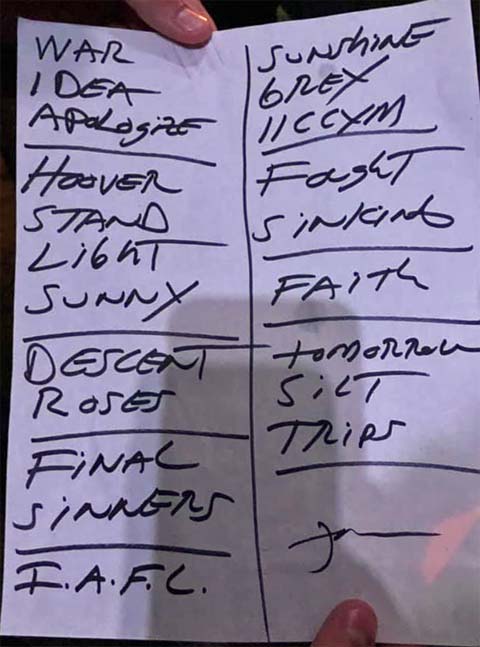 WAR
IDEA
APOLOGIZE
HOOVER
STAND
LIGHT
SUNNY
DESCENT
ROSES
FINAL
SINNERS
I.A.F.L.
SUNSHINE
GREY
IICCYM
FOUGHT
SINKING
FAITH
TOMORROW
SILT
TRIPS